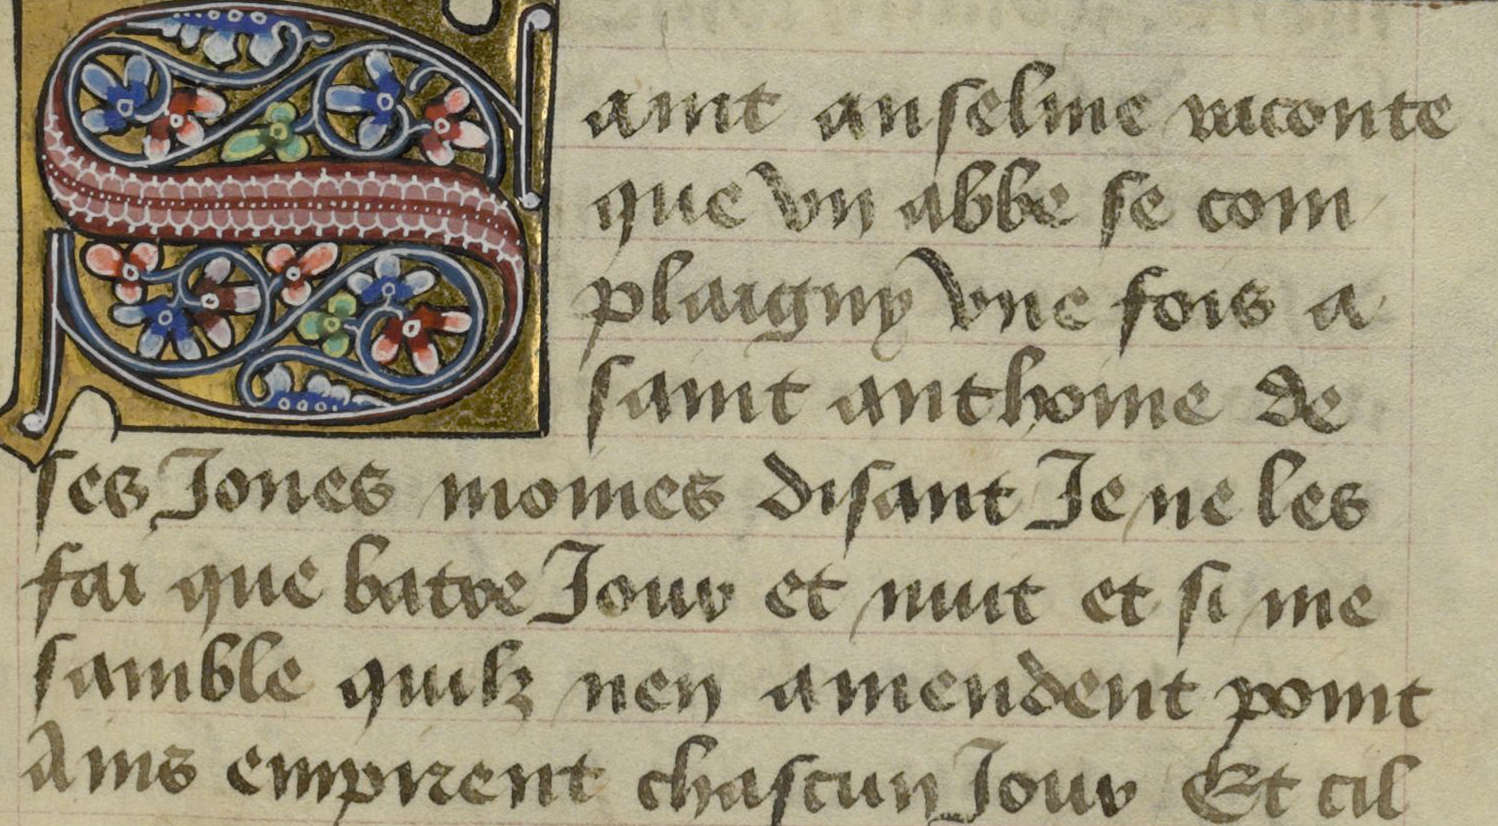 Saint anselme raconte
que vn abbe se com
plaigny vne fois a
saint anthoine de
ses Jones moines disant Je ne les
fai que batre Jour et nuit et si me
samble quilz nen amendent point
Ains empirent chascun Jour Et cil